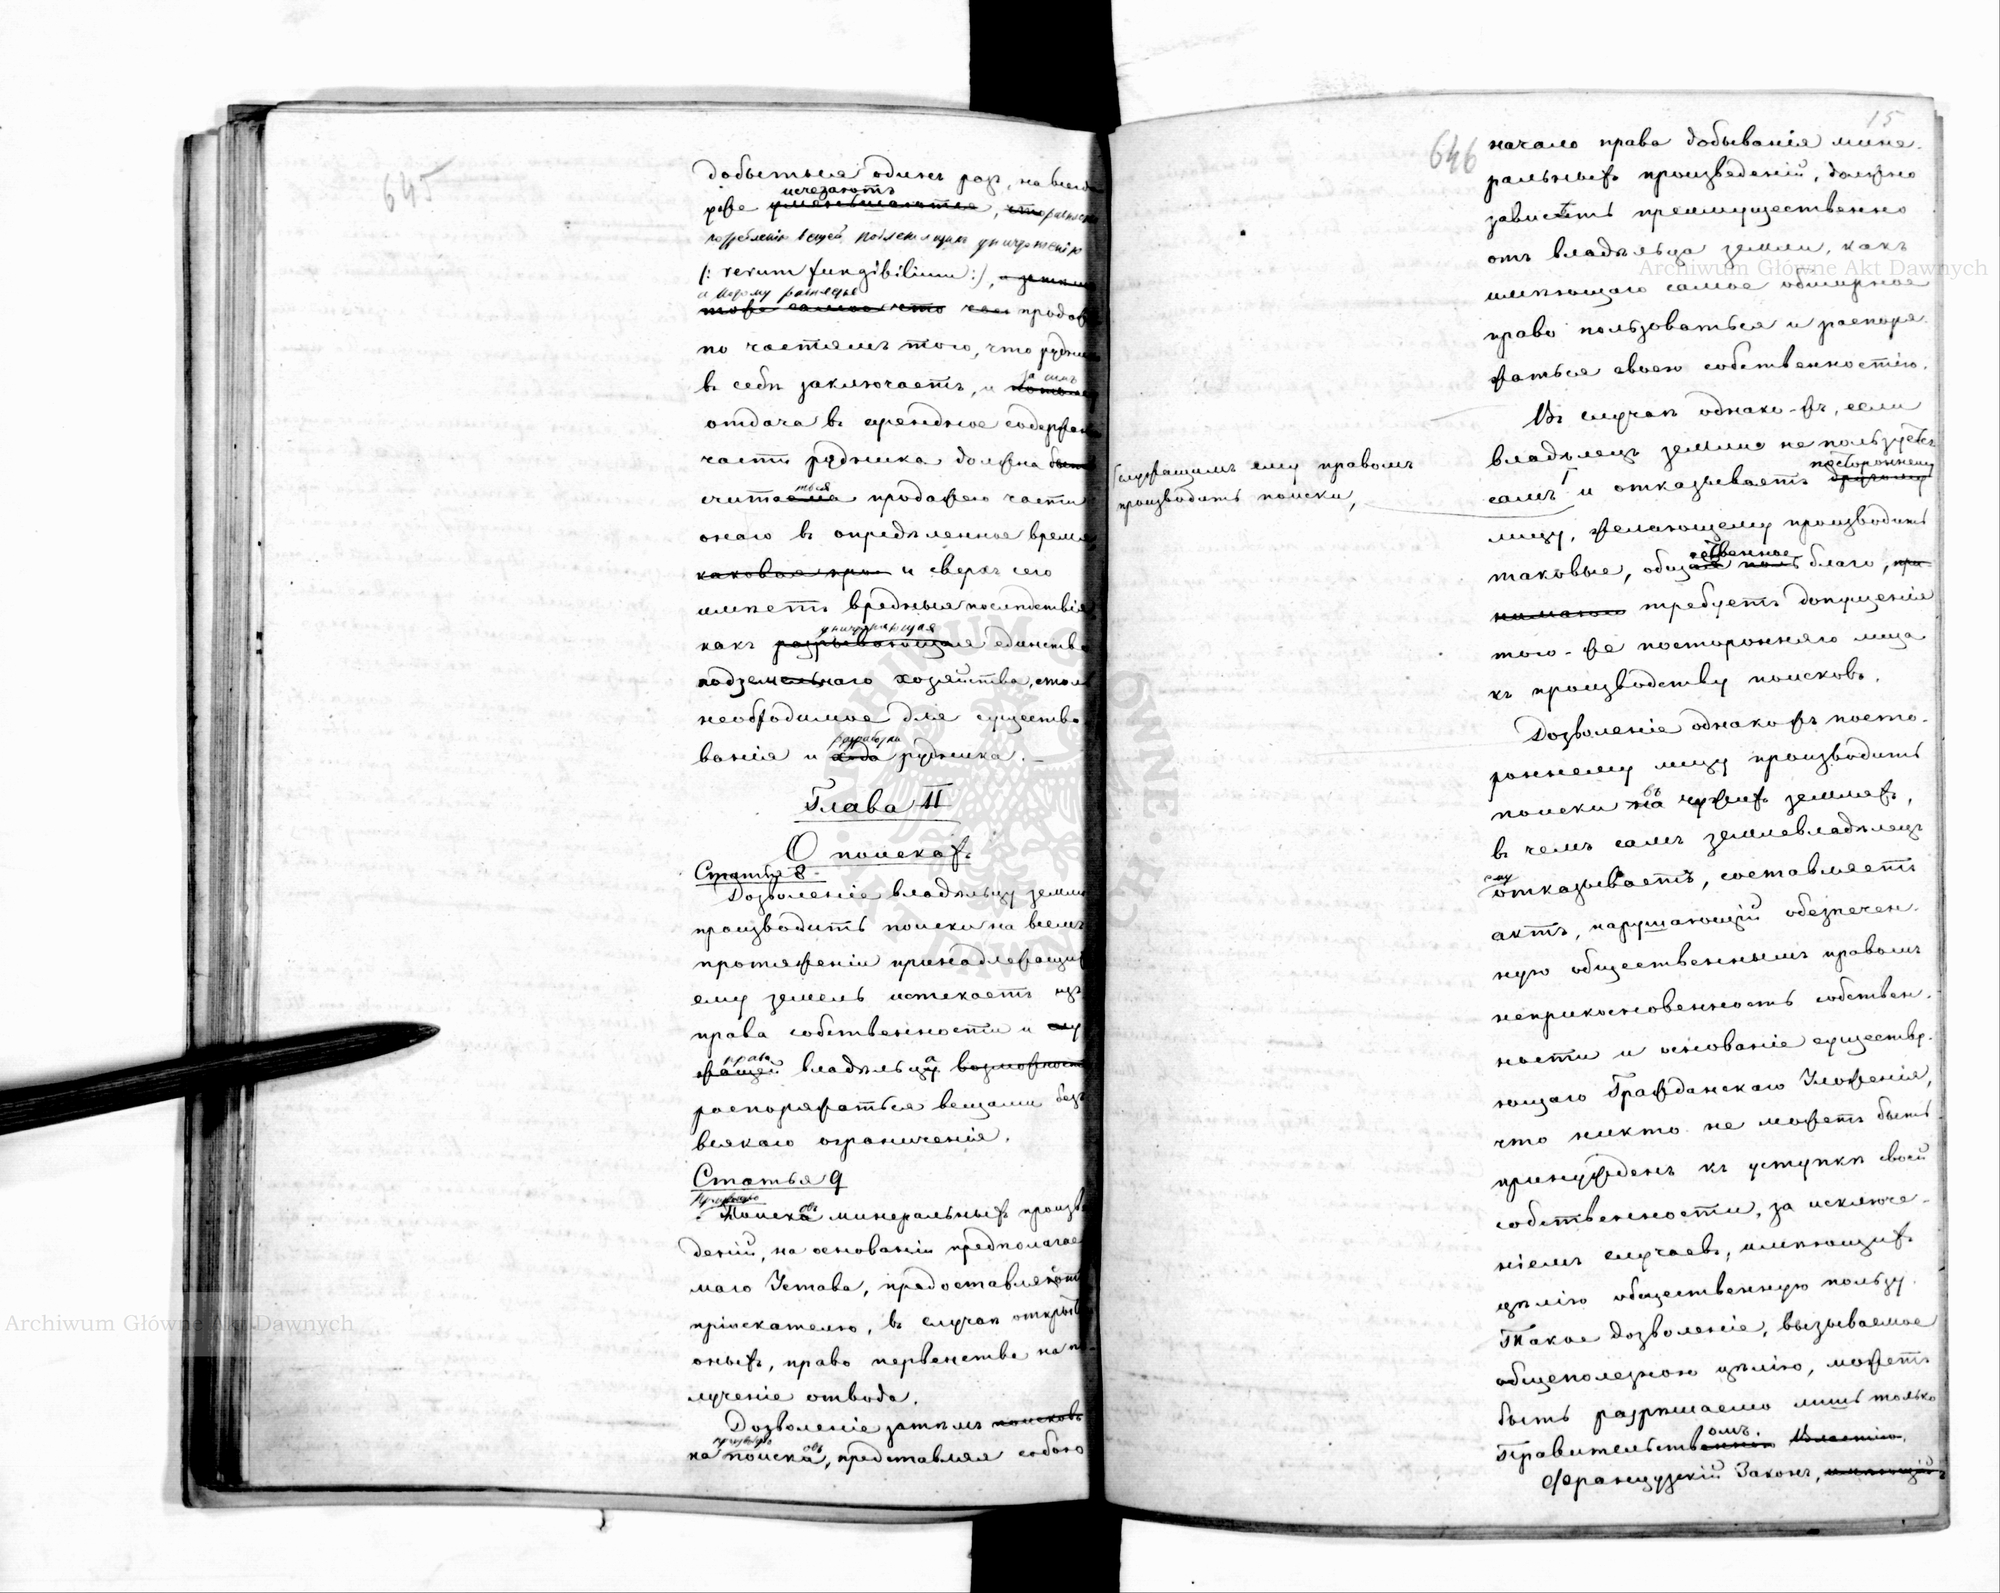 645
добытыя одинъ разъ, на всегда
исчезаютъ
уже уменьшаются, что равносильно
потребленію вещей, подлежащихъ уничтоженію
/: rerum fungibilium :/,
а потому
тоже самое что продажѣ
по частямъ того, что рудникъ
въ себѣ заключаетъ, и
за симъ
отдача въ арендное содержаніе
части рудника должна быть
считаема продажею части
онаго въ опредѣленное время
каковая и сверхъ сего
имѣетъ вредныя послѣдствія
уничтожающая
какъ разрывающая единство
подземельнаго хозяйства, столь
необходимое для существо-
разработки
ванія и хода рудника. —
Глава II
О поискахъ.
Статья 8.
Дозволеніе владѣльцу земли
производить поиски на всемъ
протяженіи принадлежащихъ
ему земель истекаетъ изъ
права собственности и слу
права
жащей владѣльцу возможности
распоряжаться вещами безъ
всякаго ограниченія.
Статья 9
Производство
Поиска минеральныхъ произве
деній, на основаніи предполагае
маго Устава, предоставляетъ
пріискателю, въ случаѣ открытія
оныхъ, право первенства на по-
лученіе отвода.
Дозволеніе затѣмъ поисковъ
на поиска, представляя собою
15
646
начало права добыванія мине-
ральныхъ произведеній, должно
зависѣть преимущественно
отъ владѣльца земли, какъ
имѣющаго самое обширное
право пользоваться и распоря-
жаться своею собственностію.
Въ случаѣ однако-жъ, если
владѣлецъ земли не пользуется
служащимъ ему правомъ
производить поиски,
постороннему
самъ и отказываетъ другому
лицу, желающему производить
ственное
таковые, общее польз благо, при-
требуетъ допущенія
того-же посторонняго лица
къ производству поисковъ.
Дозволеніе однакожъ посто-
роннему лицу производить
въ
поиски на чужихъ земляхъ,
въ чемъ самъ землевладѣлецъ
ему
отказываетъ, составляетъ
актъ, нарушающій обезпечен-
ную общественнымъ правомъ
неприкосновенность собствен-
ности и основаніе существу-
ющаго Гражданскаго Уложенія,
что никто не можетъ быть
принужденъ къ уступкѣ своей
собственности, за исключе-
ніемъ случаевъ, имѣющихъ
цѣлію общественную пользу.
Такое дозволеніе, вызываемое
общеполезною цѣлію, можетъ
быть разрѣшаемо лишь только
омъ.
Правительственною Властію.
Французскій Законъ, имѣющій
Archiwum Główne Akt Dawnych
Archiwum Główne Akt Dawnych
ARCHIWUM GŁÓWNE AKT DAWNYCH